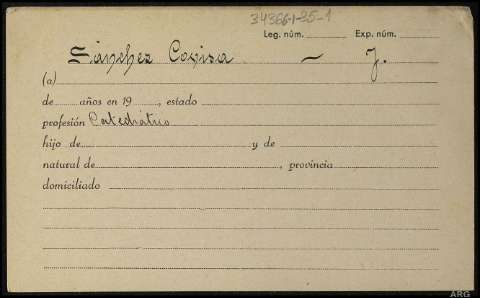 34366-1-35-1
Leg. núm. Exp. núm.
Sánchez Covisa — J.
(a)
de años en 19 , estado
profesión Catedrático
hijo de y de
natural de , provincia
domiciliado
ARG